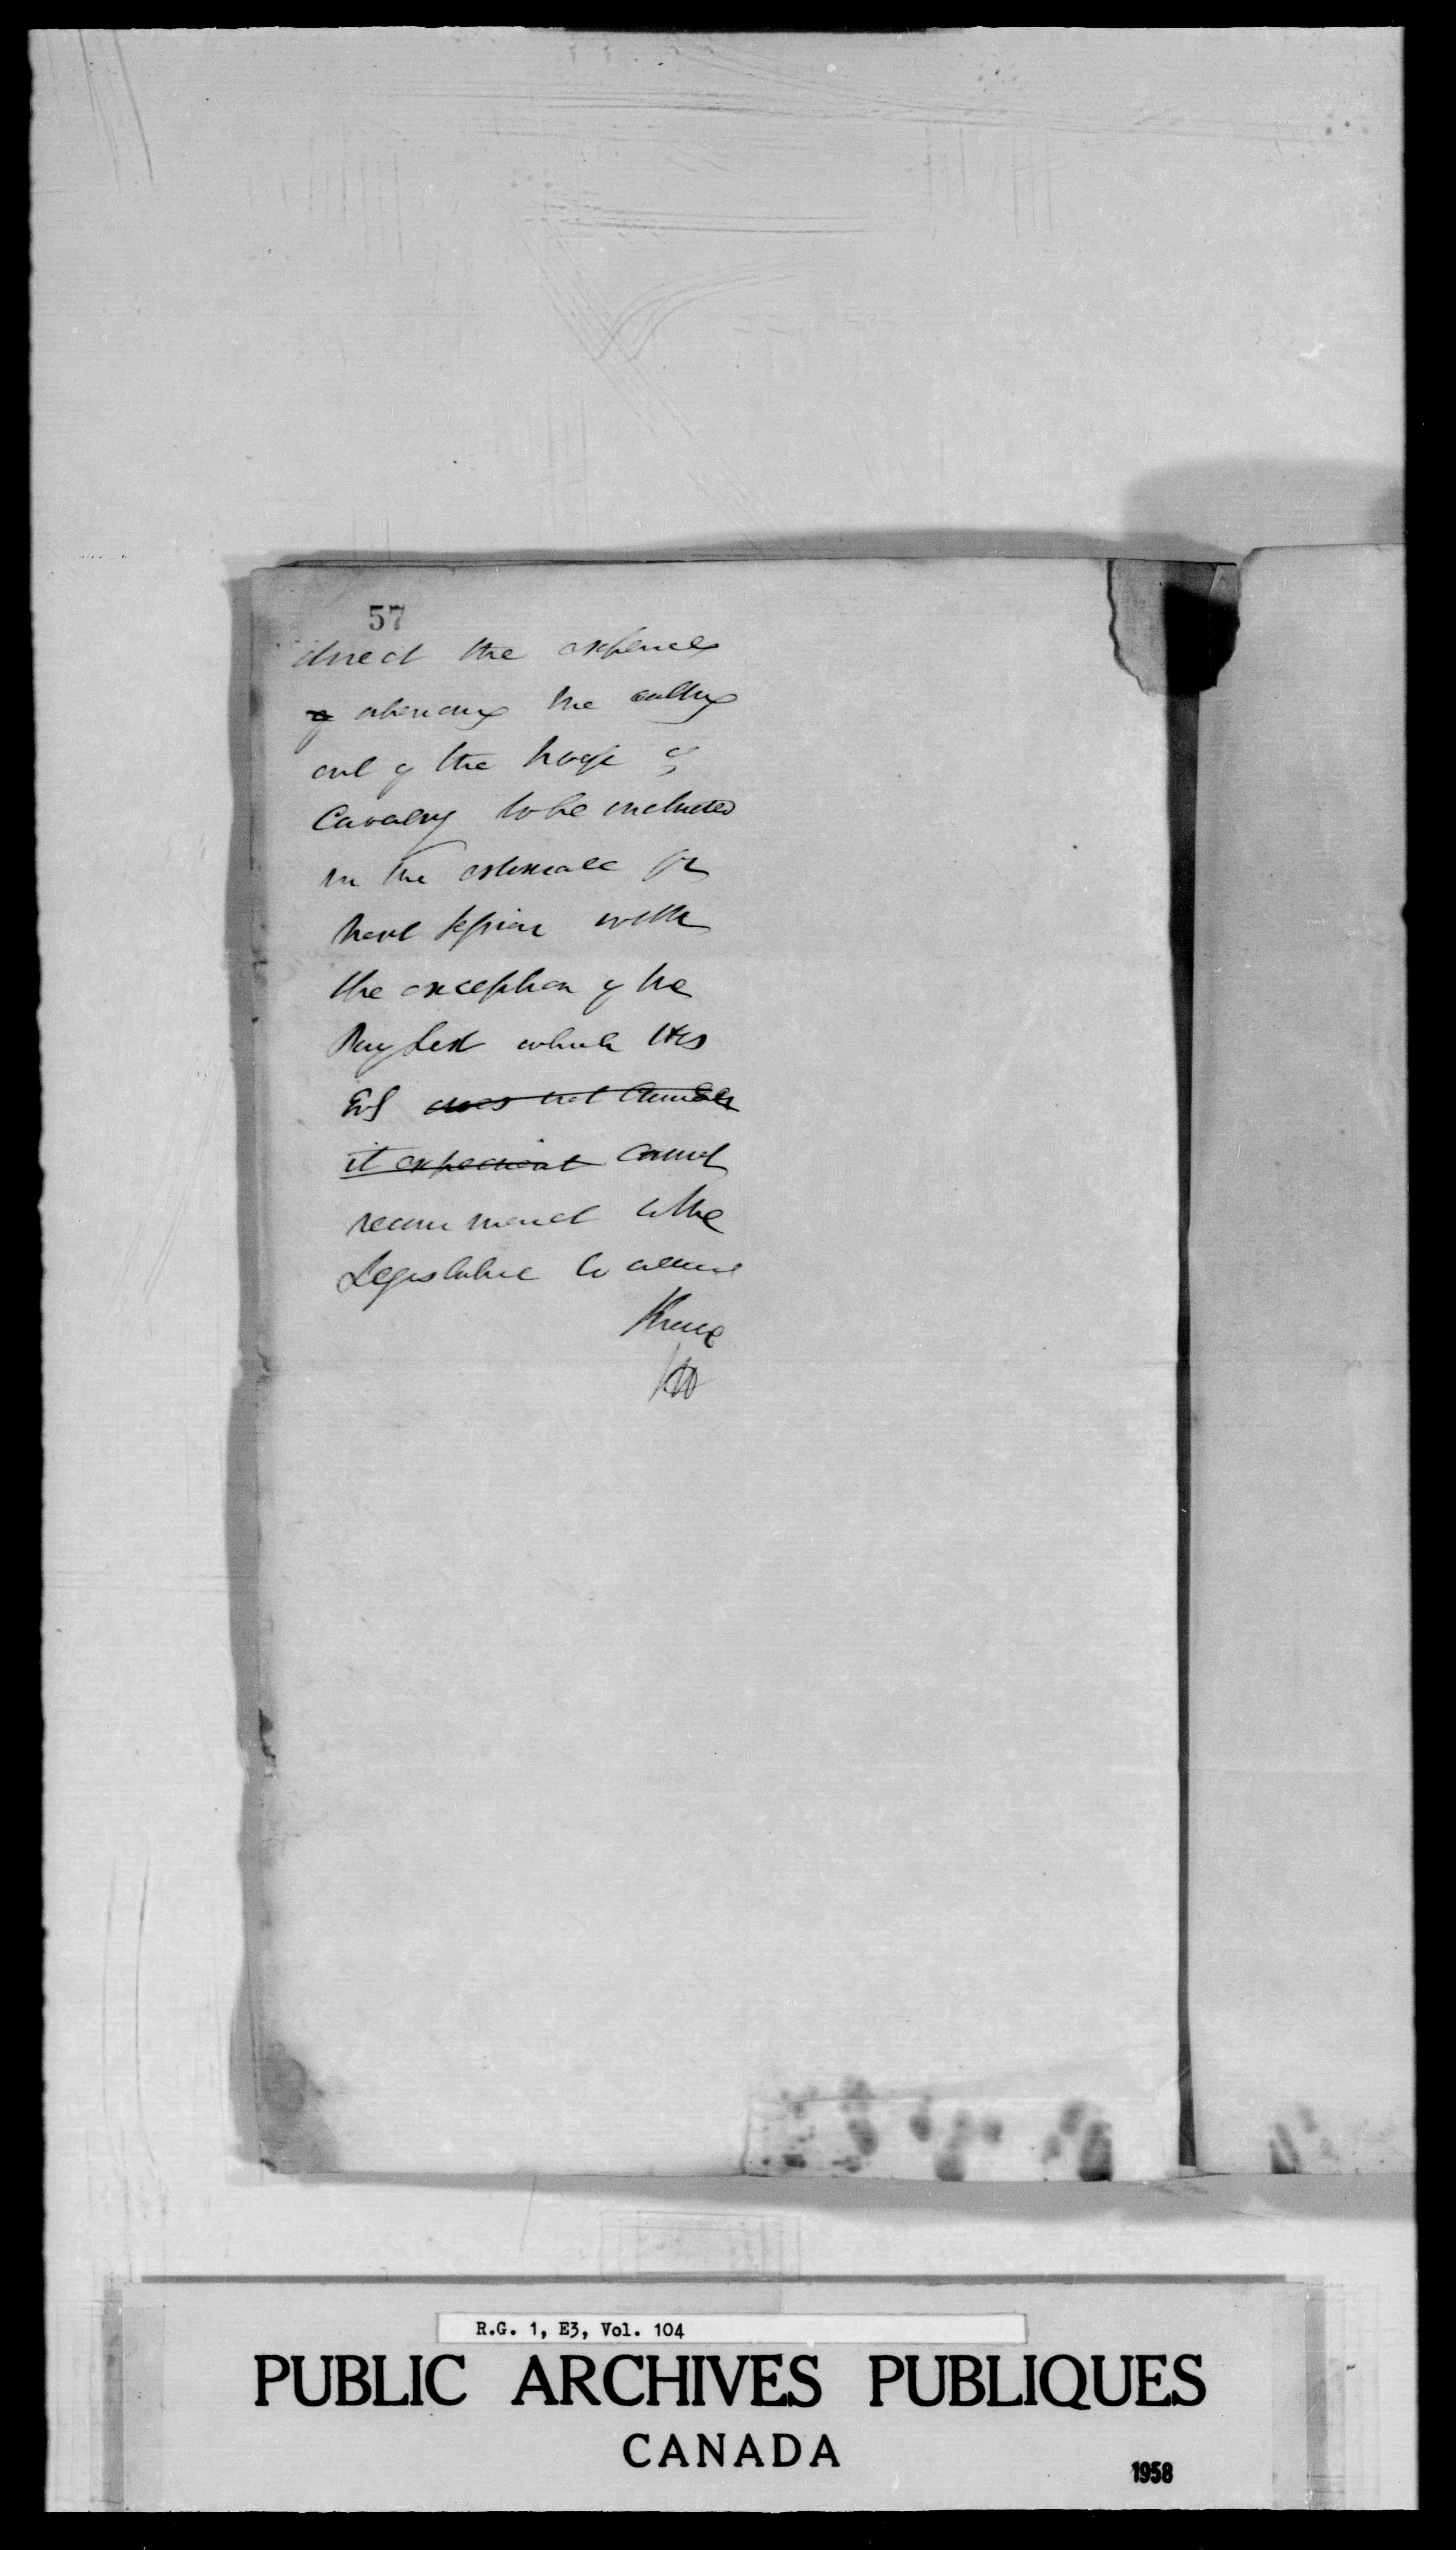 57
direct the expences
of attending the calling
out of the troop of
Cavalry to be included
in the estimate for
next session with
the exception of the
Pay List which His
Exy does not consider
it expedient cannot
recommend to the
Legislature to allow

R.G. 1, E3, Vol. 104
PUBLIC ARCHIVES PUBLIQUES
CANADA
1958